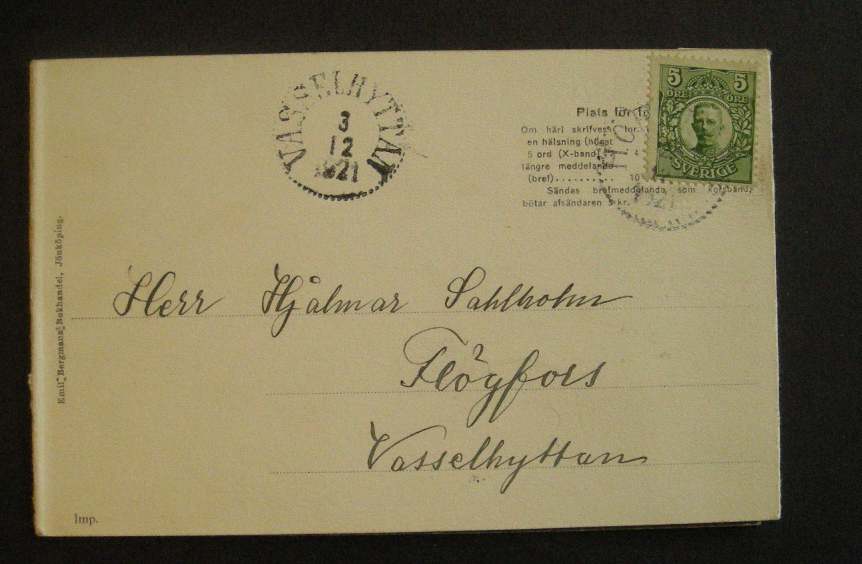 VASSELHYTTAN
3
12
1921
5 5
ÖRE ÖRE
SVERIGE
Plats för
Om häri skrifves
en hälsning (högst
5 ord (X-band) 4
längre meddelande
(bref) 10
Sändas brefmeddelande som korsband,
bötar afsändaren 5 kr.
Herr Hjalmar Sahlholm
Flögfors
Vasselhyttan
Emil Bergmans Bokhandel, Jönköping.
Imp.